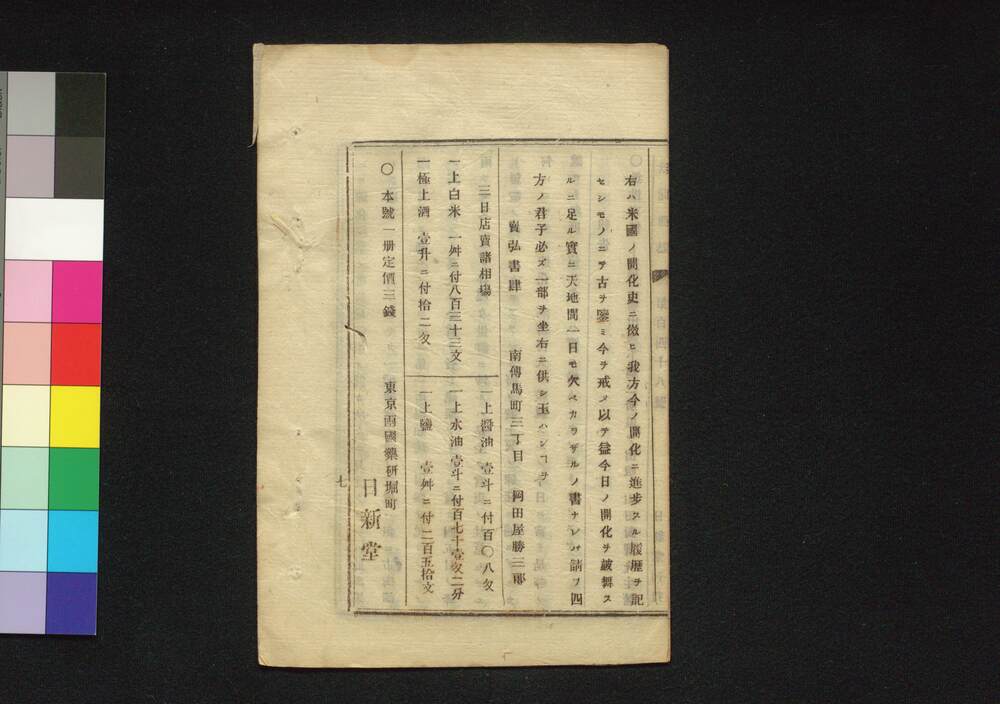 右ハ米國ノ開化史ニ倣ヒ我方今ノ開化ニ進歩スル履歴ヲ記
セシモノニテ古ヲ鑒ミ今ヲ戒メ以テ益今日ノ開化ヲ皷舞ス
ルニ足ル實ニ天地間一日モ欠ベカラザルノ書ナレバ請フ四
方ノ君子必ズ一部ヲ坐右ニ供シ玉ハンヿヲ
賣弘書肆 南傳馬町三丁目 岡田屋勝三郎
三日店賣諸相塲
一上醤油 壹斗ニ付百〇八匁
一上白米 一舛ニ付八百三十三文
一上水油 壹斗ニ付百七十壹匁二分
一極上酒 壹升ニ付拾二匁
一上鹽 壹舛ニ付二百五拾文
〇本號一册定價三錢 東京兩國藥研堀町
日新堂
七